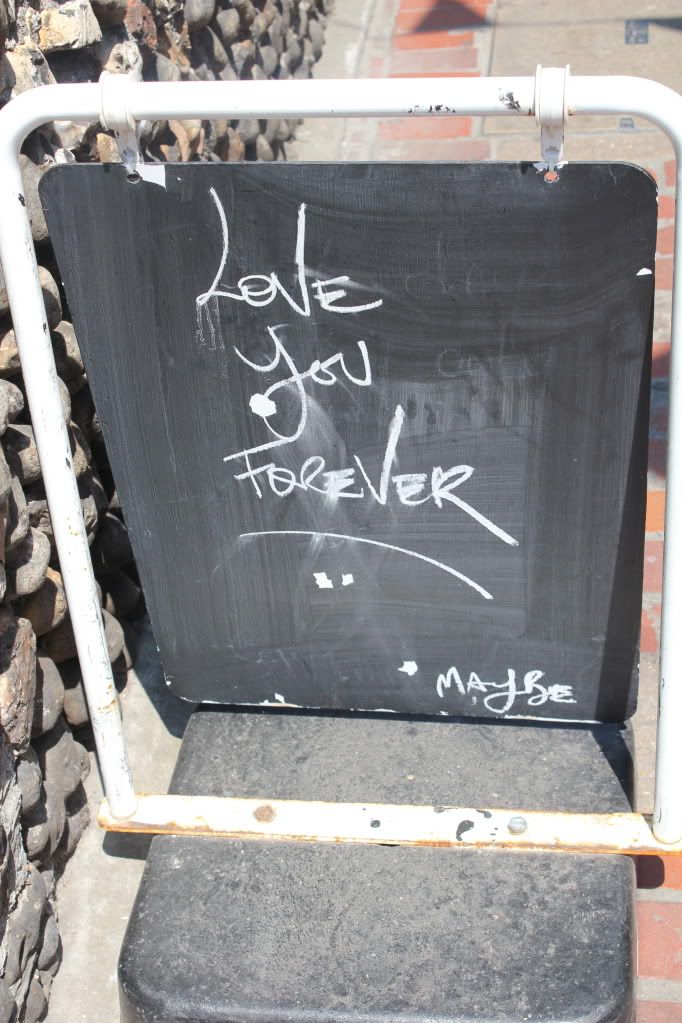 LOVE
YOU
FOREVER
MAYBE